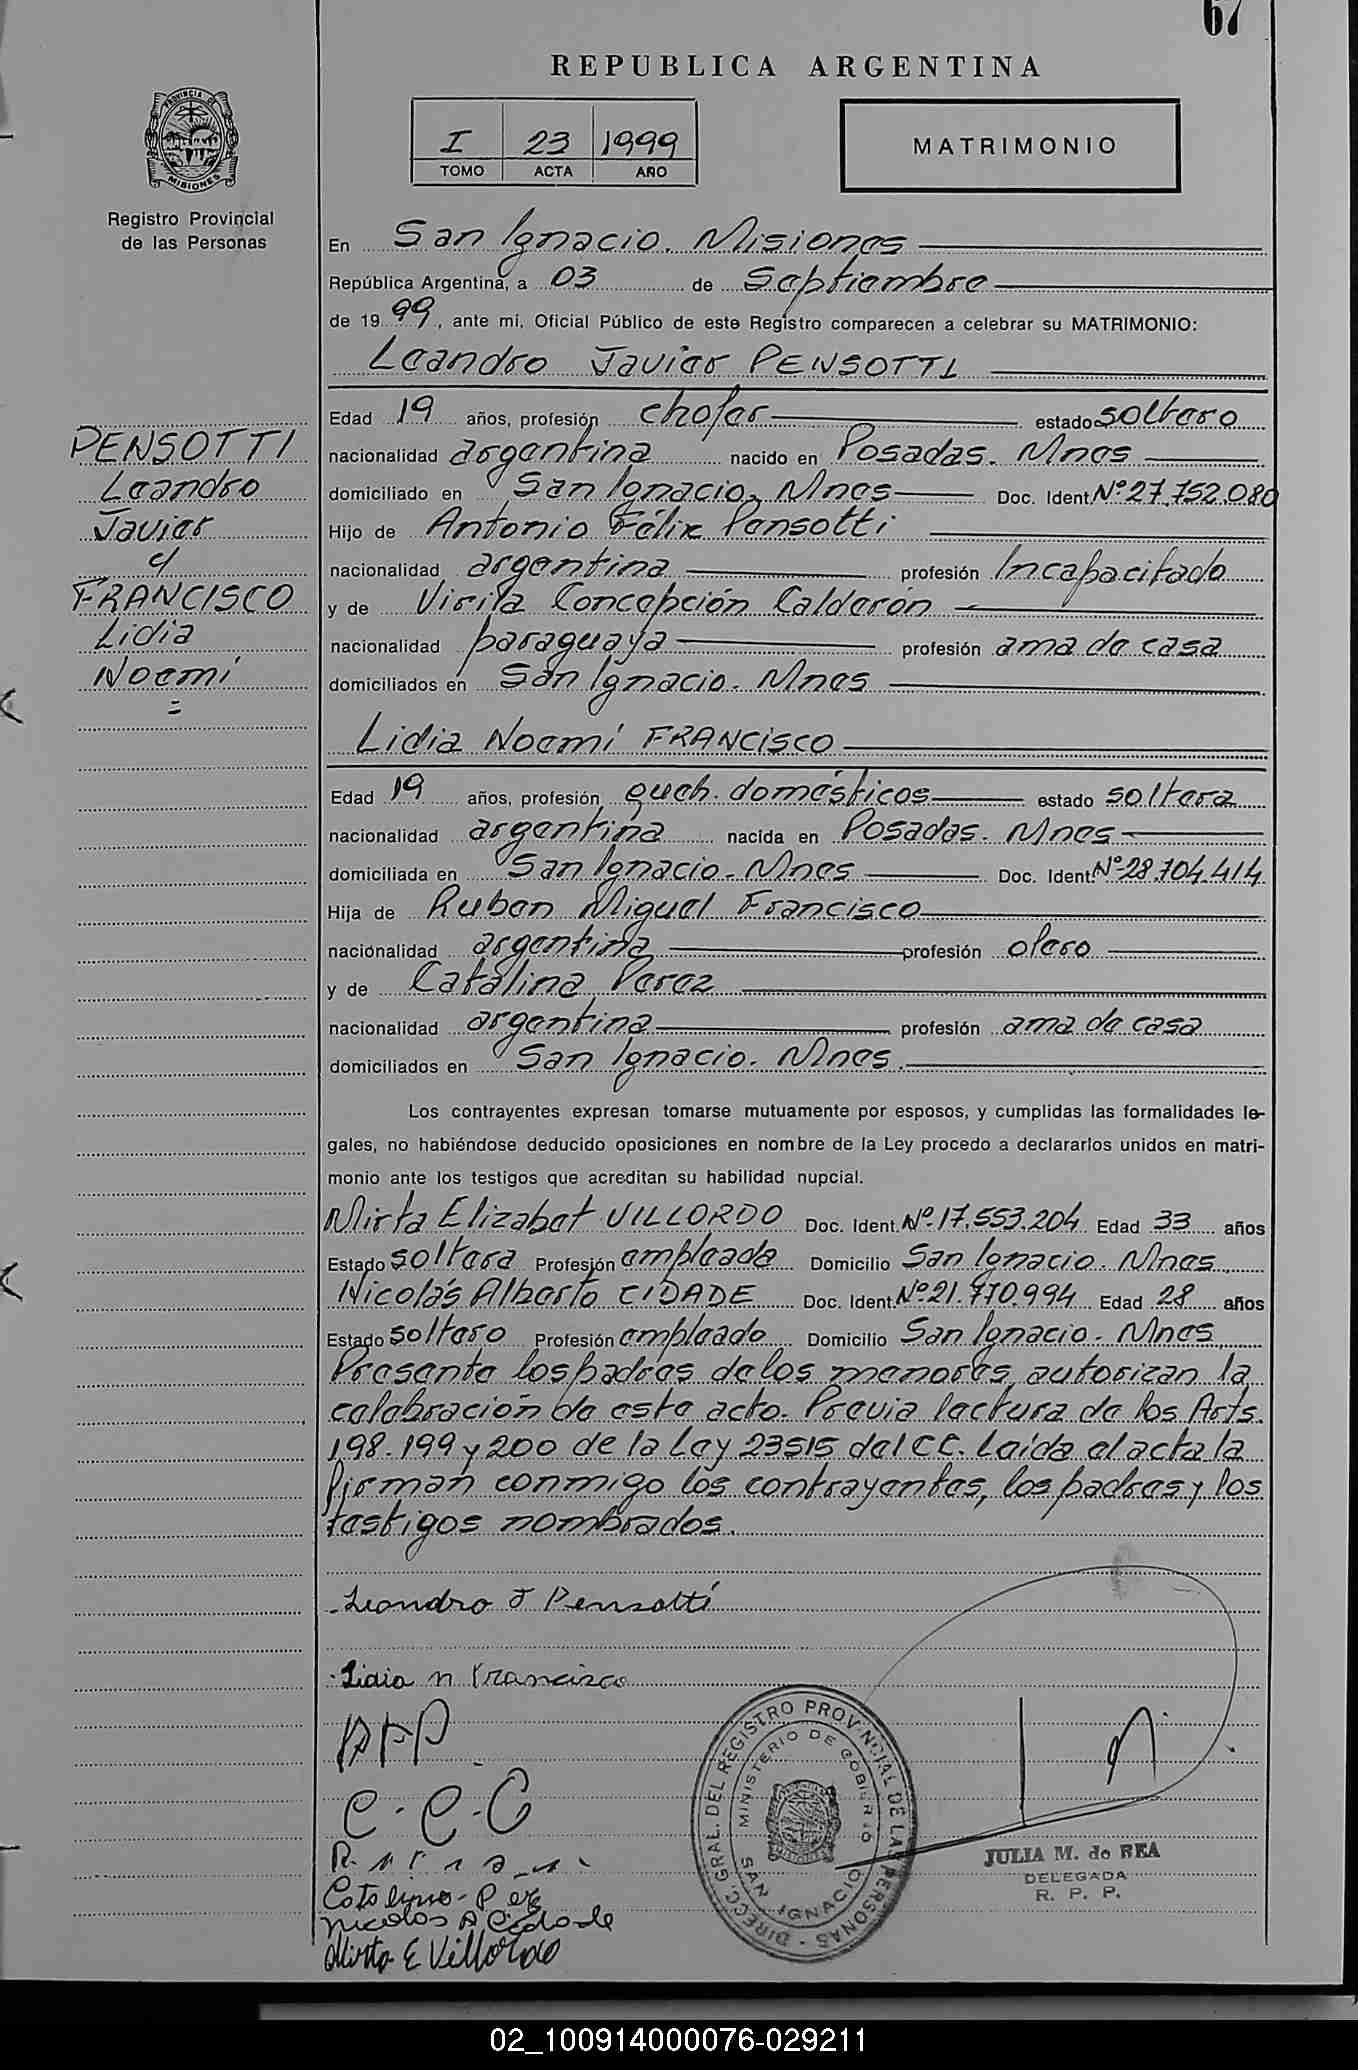 67
REPUBLICA ARGENTINA
I 23 1999
TOMO ACTA AÑO
MATRIMONIO
PROVINCIA DE MISIONES
Registro Provincial
de las Personas
En San Ignacio. Misiones
República Argentina, a 03 de Septiembre
de 19 99, ante mi, Oficial Público de este Registro comparecen a celebrar su MATRIMONIO:
Leandro Javier PENSOTTI
Edad 19 años, profesión chofer estado soltero
nacionalidad argentina nacido en Posadas. Mnes
domiciliado en San Ignacio. Mnes Doc. Ident. Nº 27.752.080
Hijo de Antonio Félix Pensotti
nacionalidad argentina profesión Incapacitado
y de Concepción Calderón
nacionalidad paraguaya profesión ama de casa
domiciliados en San Ignacio. Mnes
PENSOTTI
Leandro
Javier
y
FRANCISCO
Lidia
Noemí
=
Lidia Noemí FRANCISCO
Edad 19 años, profesión queh. domésticos estado soltera
nacionalidad argentina nacida en Posadas. Mnes
domiciliada en San Ignacio. Mnes Doc. Ident. Nº 28.704.414
Hija de Ruben Miguel Francisco
nacionalidad argentina profesión olero
y de Catalina Perez
nacionalidad argentina profesión ama de casa
domiciliados en San Ignacio. Mnes.
Los contrayentes expresan tomarse mutuamente por esposos, y cumplidas las formalidades le-
gales, no habiéndose deducido oposiciones en nombre de la Ley procedo a declararlos unidos en matri-
monio ante los testigos que acreditan su habilidad nupcial.
Mirta Elizabet VILLORDO Doc. Ident. Nº 17.553.204 Edad 33 años
Estado soltera Profesión empleada Domicilio San Ignacio. Mnes
Nicolás Alberto CIDADE Doc. Ident. Nº 21.770.994 Edad 28 años
Estado soltero Profesión empleado Domicilio San Ignacio. Mnes
Presente los padres de los menores autorizan la
celebración de este acto. Previa lectura de los Arts.
198. 199 y 200 de la Ley 23515 del CC. Leída el acta la
firman conmigo los contrayentes, los padres y los
testigos nombrados.
Leandro J Pensotti
Lidia N Francisco
AFP
C.C.C
Catalina Perez
Nicolas A Cidade
Mirta E Villordo
DIRECC. GRAL. DEL REGISTRO PROVINCIAL DE LAS PERSONAS
MINISTERIO DE GOBIERNO
SAN IGNACIO
JULIA M. de REA
DELEGADA
R. P. P.
02_100914000076-029211